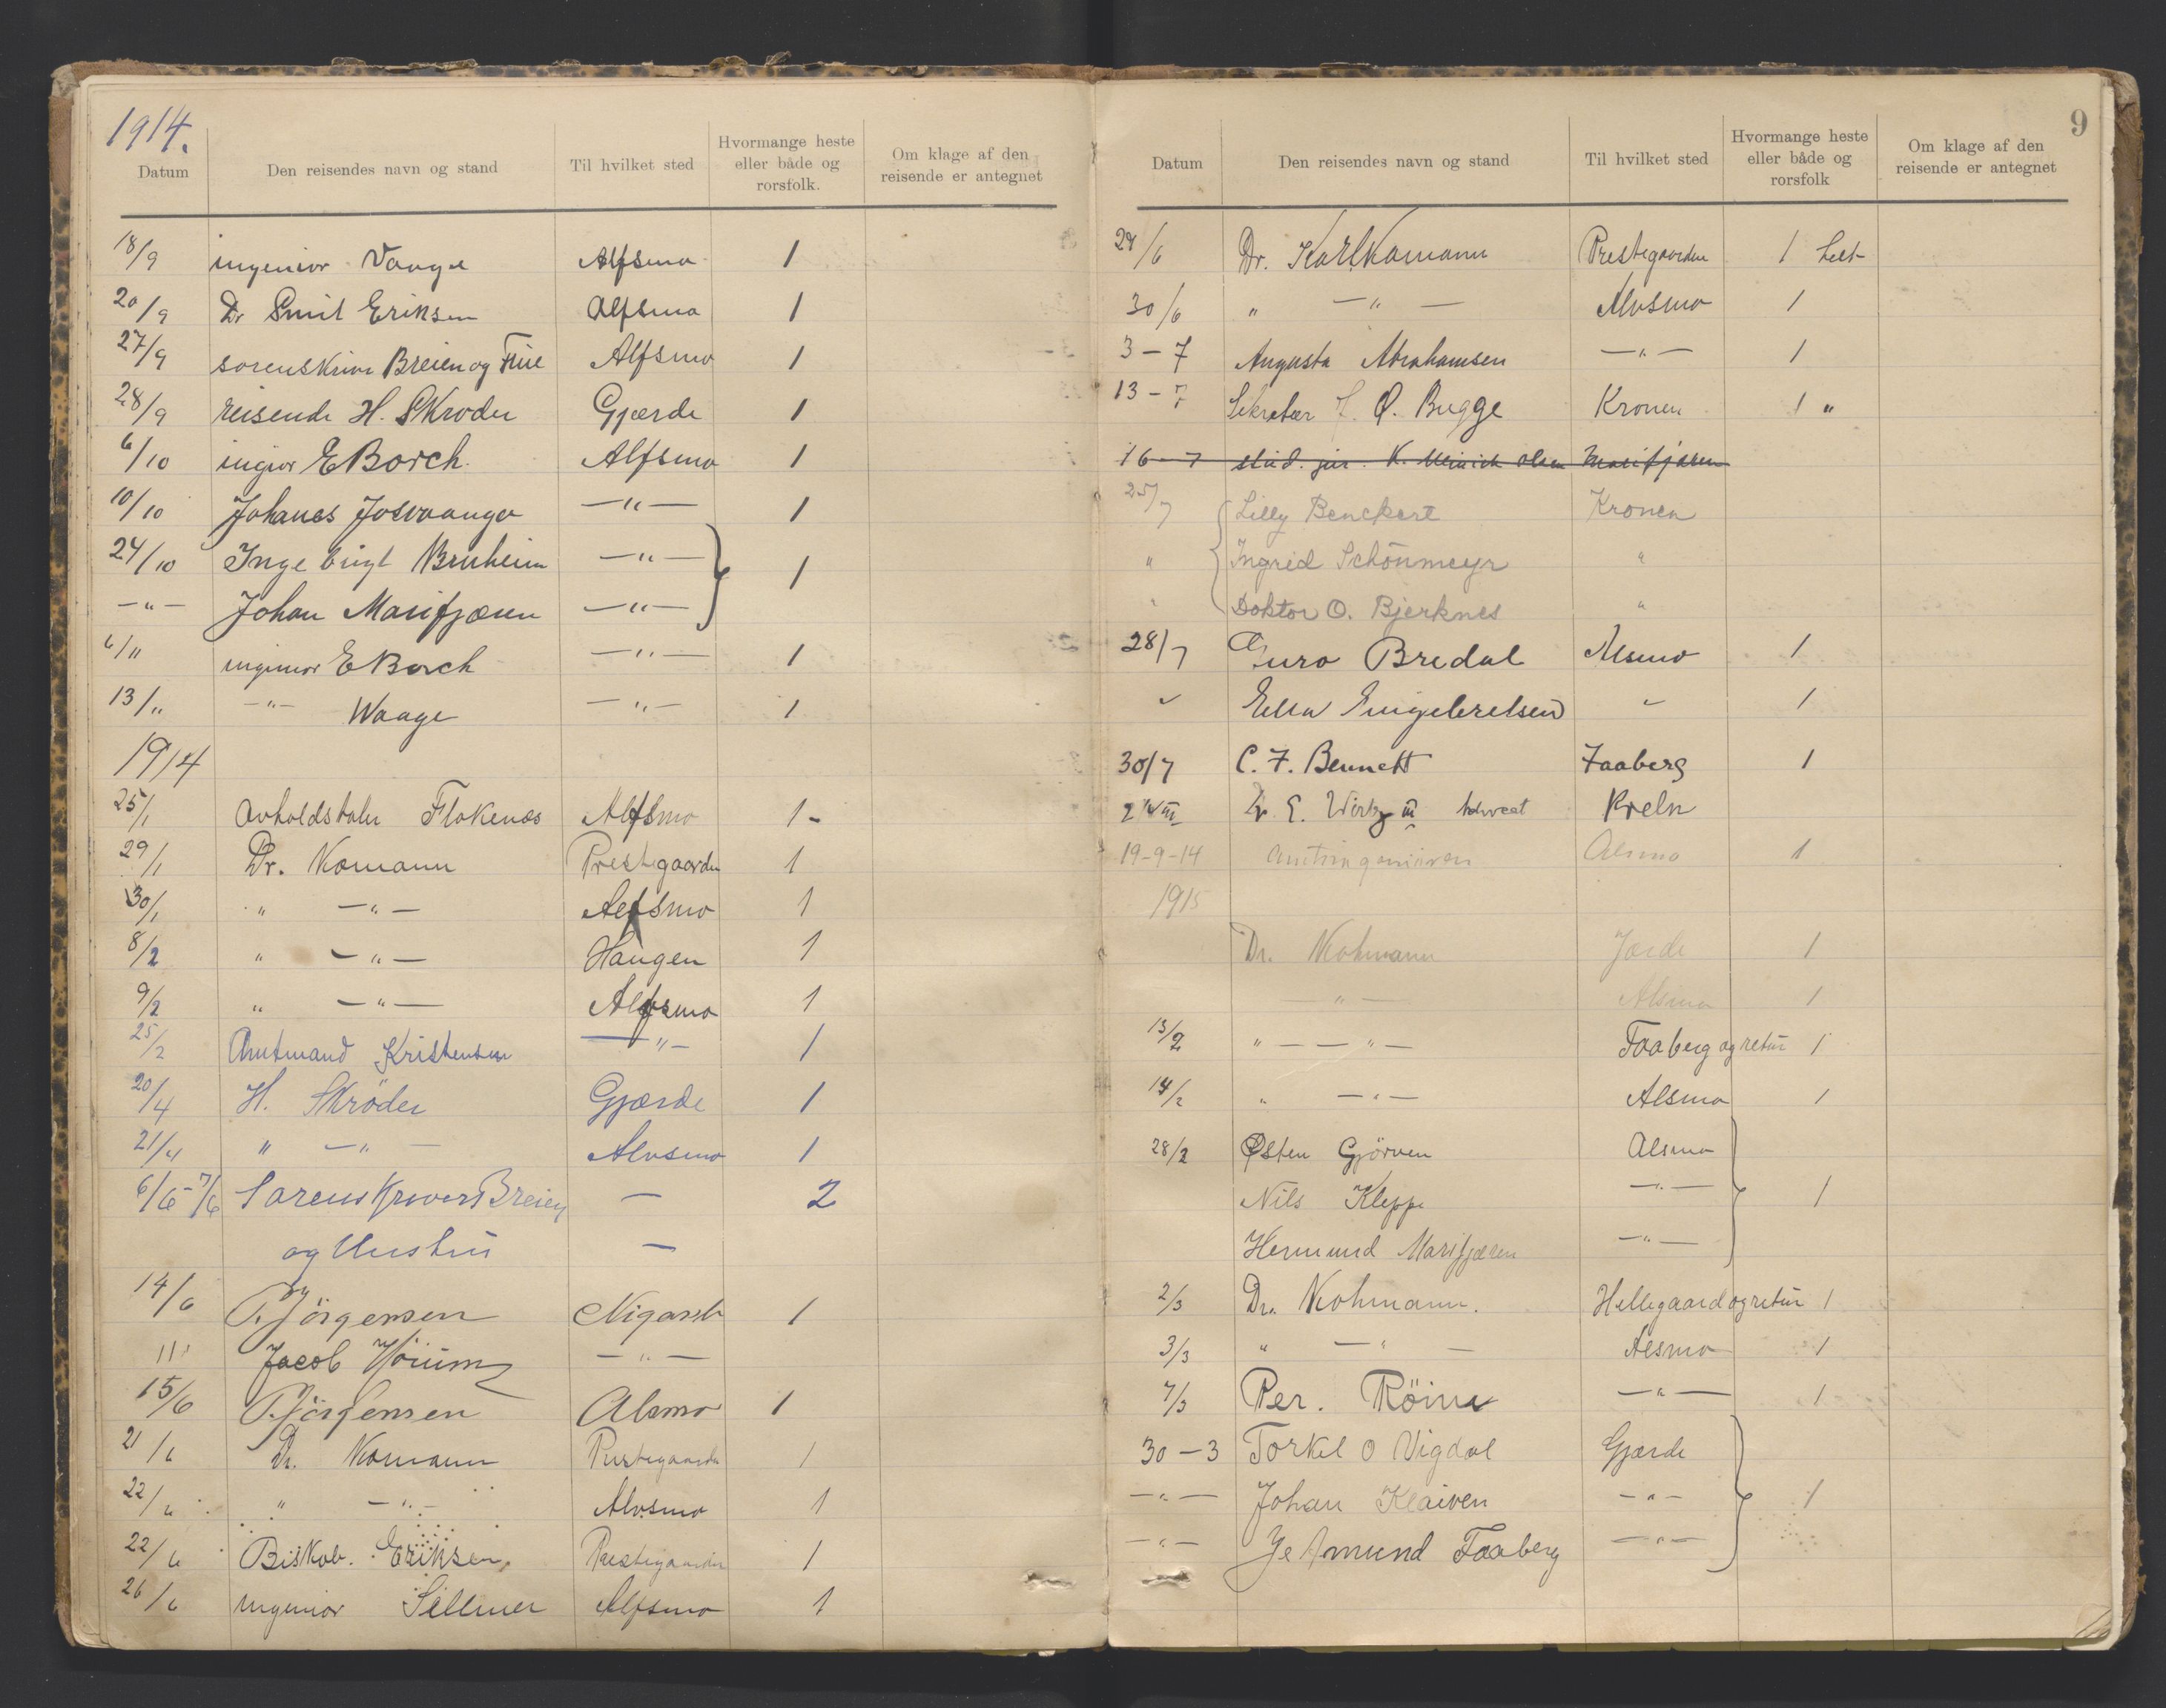 1914.
Datum Den reisendes navn og stand Til hvilket sted Hvormange heste eller både og rorsfolk. Om klage af den reisende er antegnet
18/9 ingeniør Vaage Alfsmo 1
20/9 Dr Smit Eriksen Alfsmo 1
27/9 sorenskriver Breien og Frue Alfsmo 1
28/9 reisende H. Skrøder Gjærde 1
6/10 E Borch Alfsmo 1
10/10 Johanes —"— 1
24/10 Ingebrigt Bruheim —"— 1
—"— Johan Marifjæren —"—
6/11 ingeniør E Borch —"— 1
13/11 —"— Waage —"— 1
1914
25/1 Avholdstaler Flokenæs Alfsmo 1-
29/1 Dr. Komann Prestegaarden 1
30/1 " —"— Alfsmo 1
8/2 " —"— Haugen 1
9/2 " —"— Alfsmo 1
25/2 Amtmand Kristensen —"— 1
20/4 H. Skrøder Gjærde 1
21/4 " —"— Alvsmo 1
6/6-7/6 Sorenskriver Breien — 2
og Hustru —
14/6 P. Jörgensen Nigard 1
11 Jacob —"—
15/6 P. Jörgensen Alsmo 1
21/6 Dr. Komann Prestegaarden 1
22/6 " —"— Alvsmo 1
22/6 Biskob. Eriksen Prestegaarden 1
26/6 ingeniør Sellmer Alfsmo 1
9
Datum Den reisendes navn og stand Til hvilket sted Hvormange heste eller både og rorsfolk Om klage af den reisende er antegnet
29/6 Dr. Karl Komann Prestegaarden 1
30/6 " —"— Alvsmo 1
3-7 Augusta Abrahamsen —"— 1
13-7 Sekretær J. Q. Bugge Kronen 1 "
16-7 stud. jur. K. Olsen Marifjæren
25/7 Lilly Benckert Kronen
" Ingrid Schönmeyr "
" Doktor O. Bjerknes "
28/7 Guro Bredal Alsmo 1
" Ella Engebretsen " 1
30/7 C. F. Bennett Faaberg 1
Dr. E.
19-9-14 Amtsingeniören Alsmo 1
1915
Dr. Kohmann Jærde 1
—"— Alsmo 1
13/2 "——"— Faaberg og retur 1
14/2 " —"— Alsmo 1
28/2 Østen Gjörven Alsmo
Nils Kleppe —"— 1
Hermund Marifjæren —"—
2/3 Dr. Kohmann. Hellegaard og retur 1
3/3 " —"— Alsmo 1
7/3 Per. —"— 1
30-3 Torkel O Vigdal Gjærde
—"— Johan Klaiven —"— 1
—"— Amund Faaberg —"—